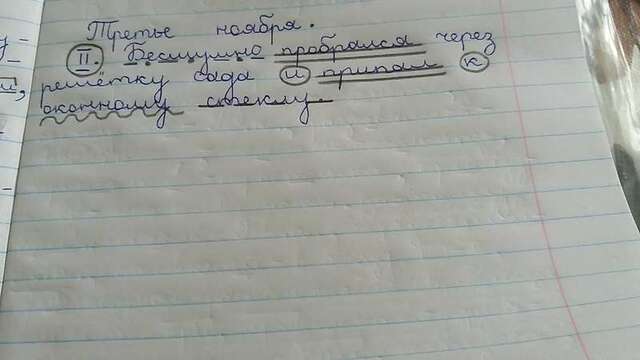 Третье ноября.
II. Бесшумно пробрался через
решётку сада и припал к
оконному стеклу.